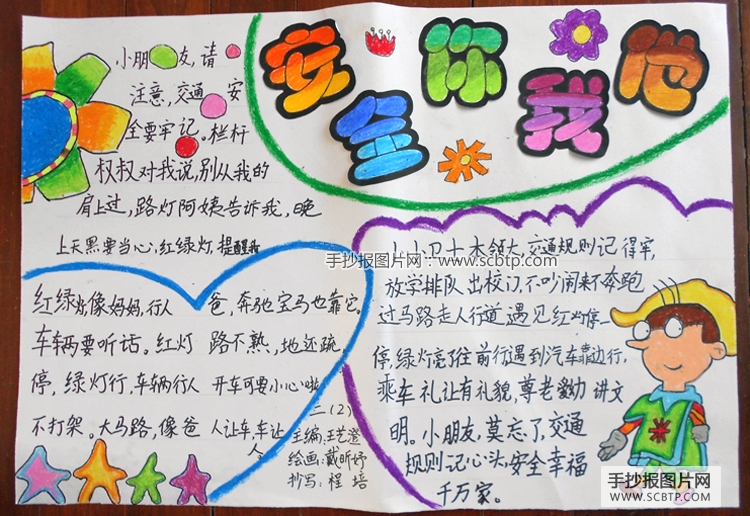 安全你我他
小朋友,请
注意,交通安
全要牢记。栏杆
叔叔对我说,别从我的
肩上过,路灯阿姨告诉我,晚
上天黑要当心,红绿灯,提醒我
红绿灯像妈妈,行人
车辆要听话。红灯
停,绿灯行,车辆行人
不打架。大马路,像爸
爸,奔驰宝马也靠它。
路不熟,地还疏,
开车可要小心啦
人让车,车让
人
二(2)
主编:王艺澄
绘画:戴昕妤
抄写:程培
小小卫士本领大,交通规则记得牢,
放学排队出校门,不吵闹来不奔跑
过马路走人行道遇见红灯停一
停,绿灯亮了往前行遇到汽车靠边行,
乘车礼让有礼貌,尊老爱幼讲文
明。小朋友,莫忘了,交通
规则记心头,安全幸福
千万家。
手抄报图片网:www.scbtp.com
手抄报图片网
WWW.SCBTP.COM